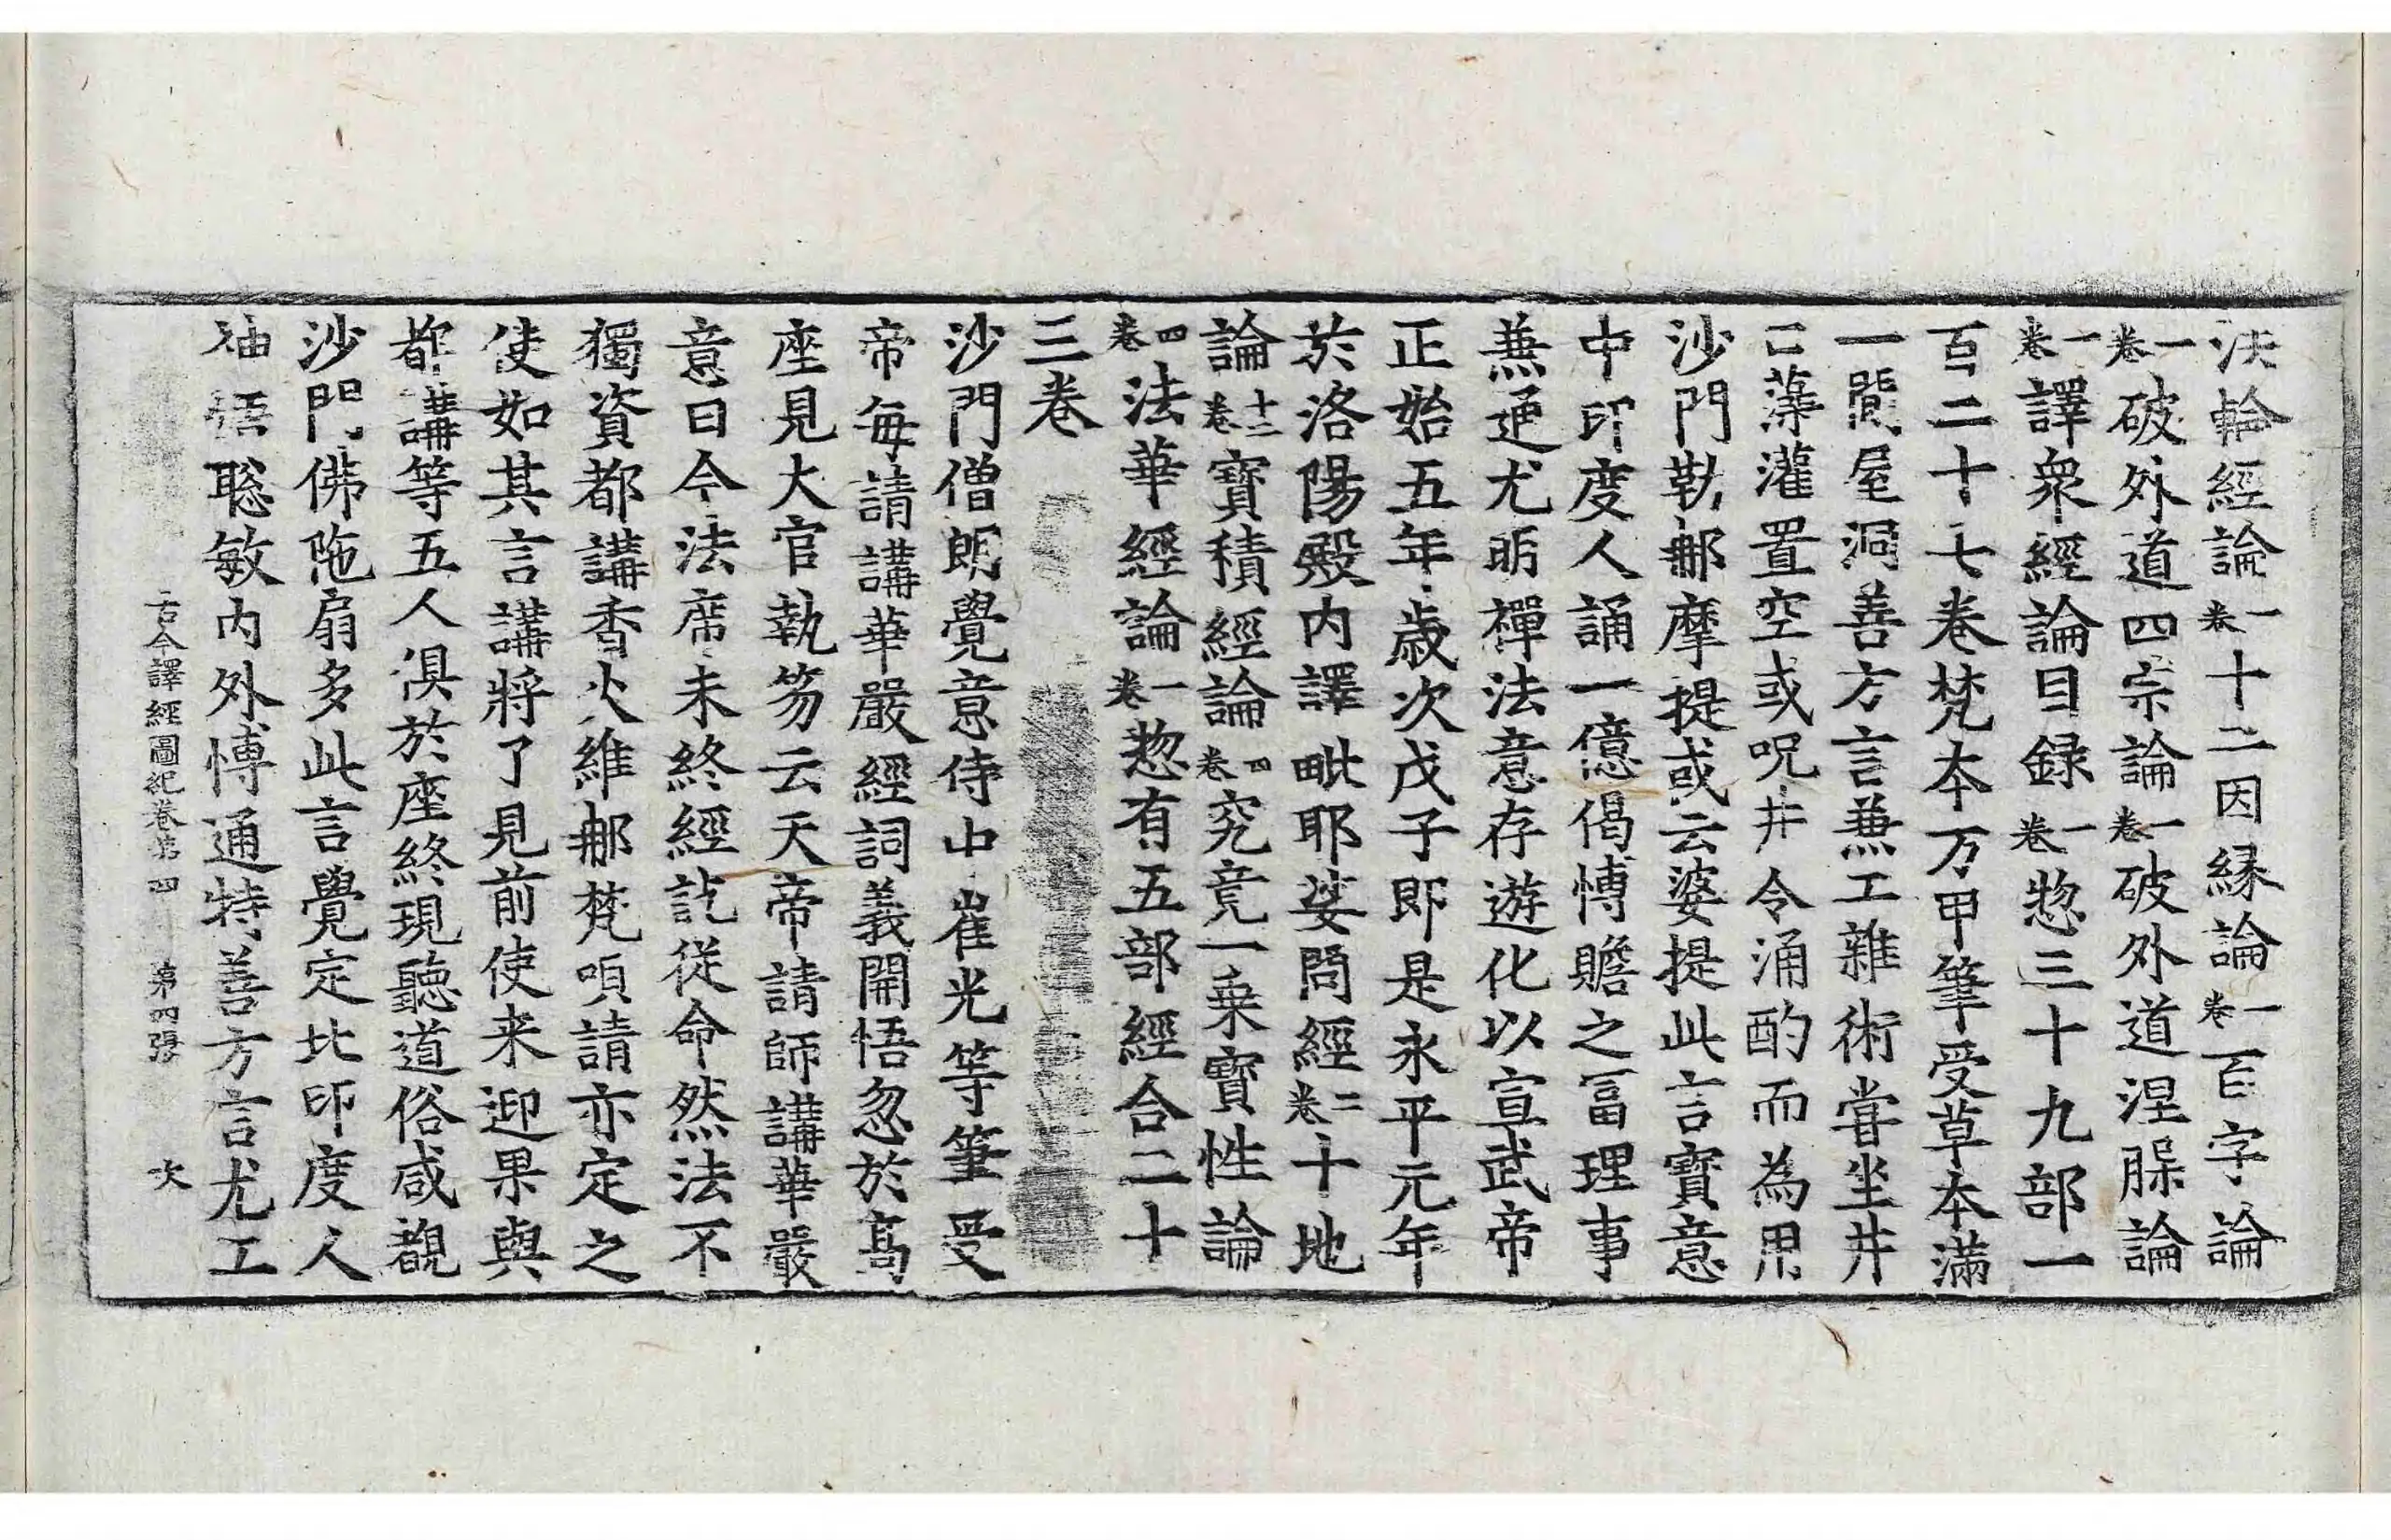 法輪經論一卷十二因縁論一卷百字論
一卷破外道四宗論一卷破外道涅槃論
一卷譯衆經論目録一卷惣三十九部一
百二十七卷梵本万甲筆受草本滿
一閒屋洞善方言兼工雜術嘗坐井
口藻灌置空或呪井令涌酌而為用
沙門勒那摩提或云婆提此言寶意
中印度人誦一億偈博贍之冨理事
兼通尤明禪法意存遊化以宣武帝
正始五年歳次戊子即是永平元年
於洛陽殿内譯毗耶娑問經二卷十地
論十二卷寶積經論四卷究竟一乗寶性論
四卷法華經論一卷惣有五部經合二十
三卷
沙門僧朗覺意侍中崔光等筆受
帝每請講華嚴經詞義開悟忽於高
座見大官執笏云天帝請師講華嚴
意曰今法席未終經訖從命然法不
獨資都講香火維那梵唄請亦定之
使如其言講將了見前使来迎果與
都講等五人俱於座終現聽道俗咸覩
沙門佛陁扇多此言覺定北印度人
神悟聡敏内外博通特善方言尤工
古今譯經圖紀卷第四 第四張 次